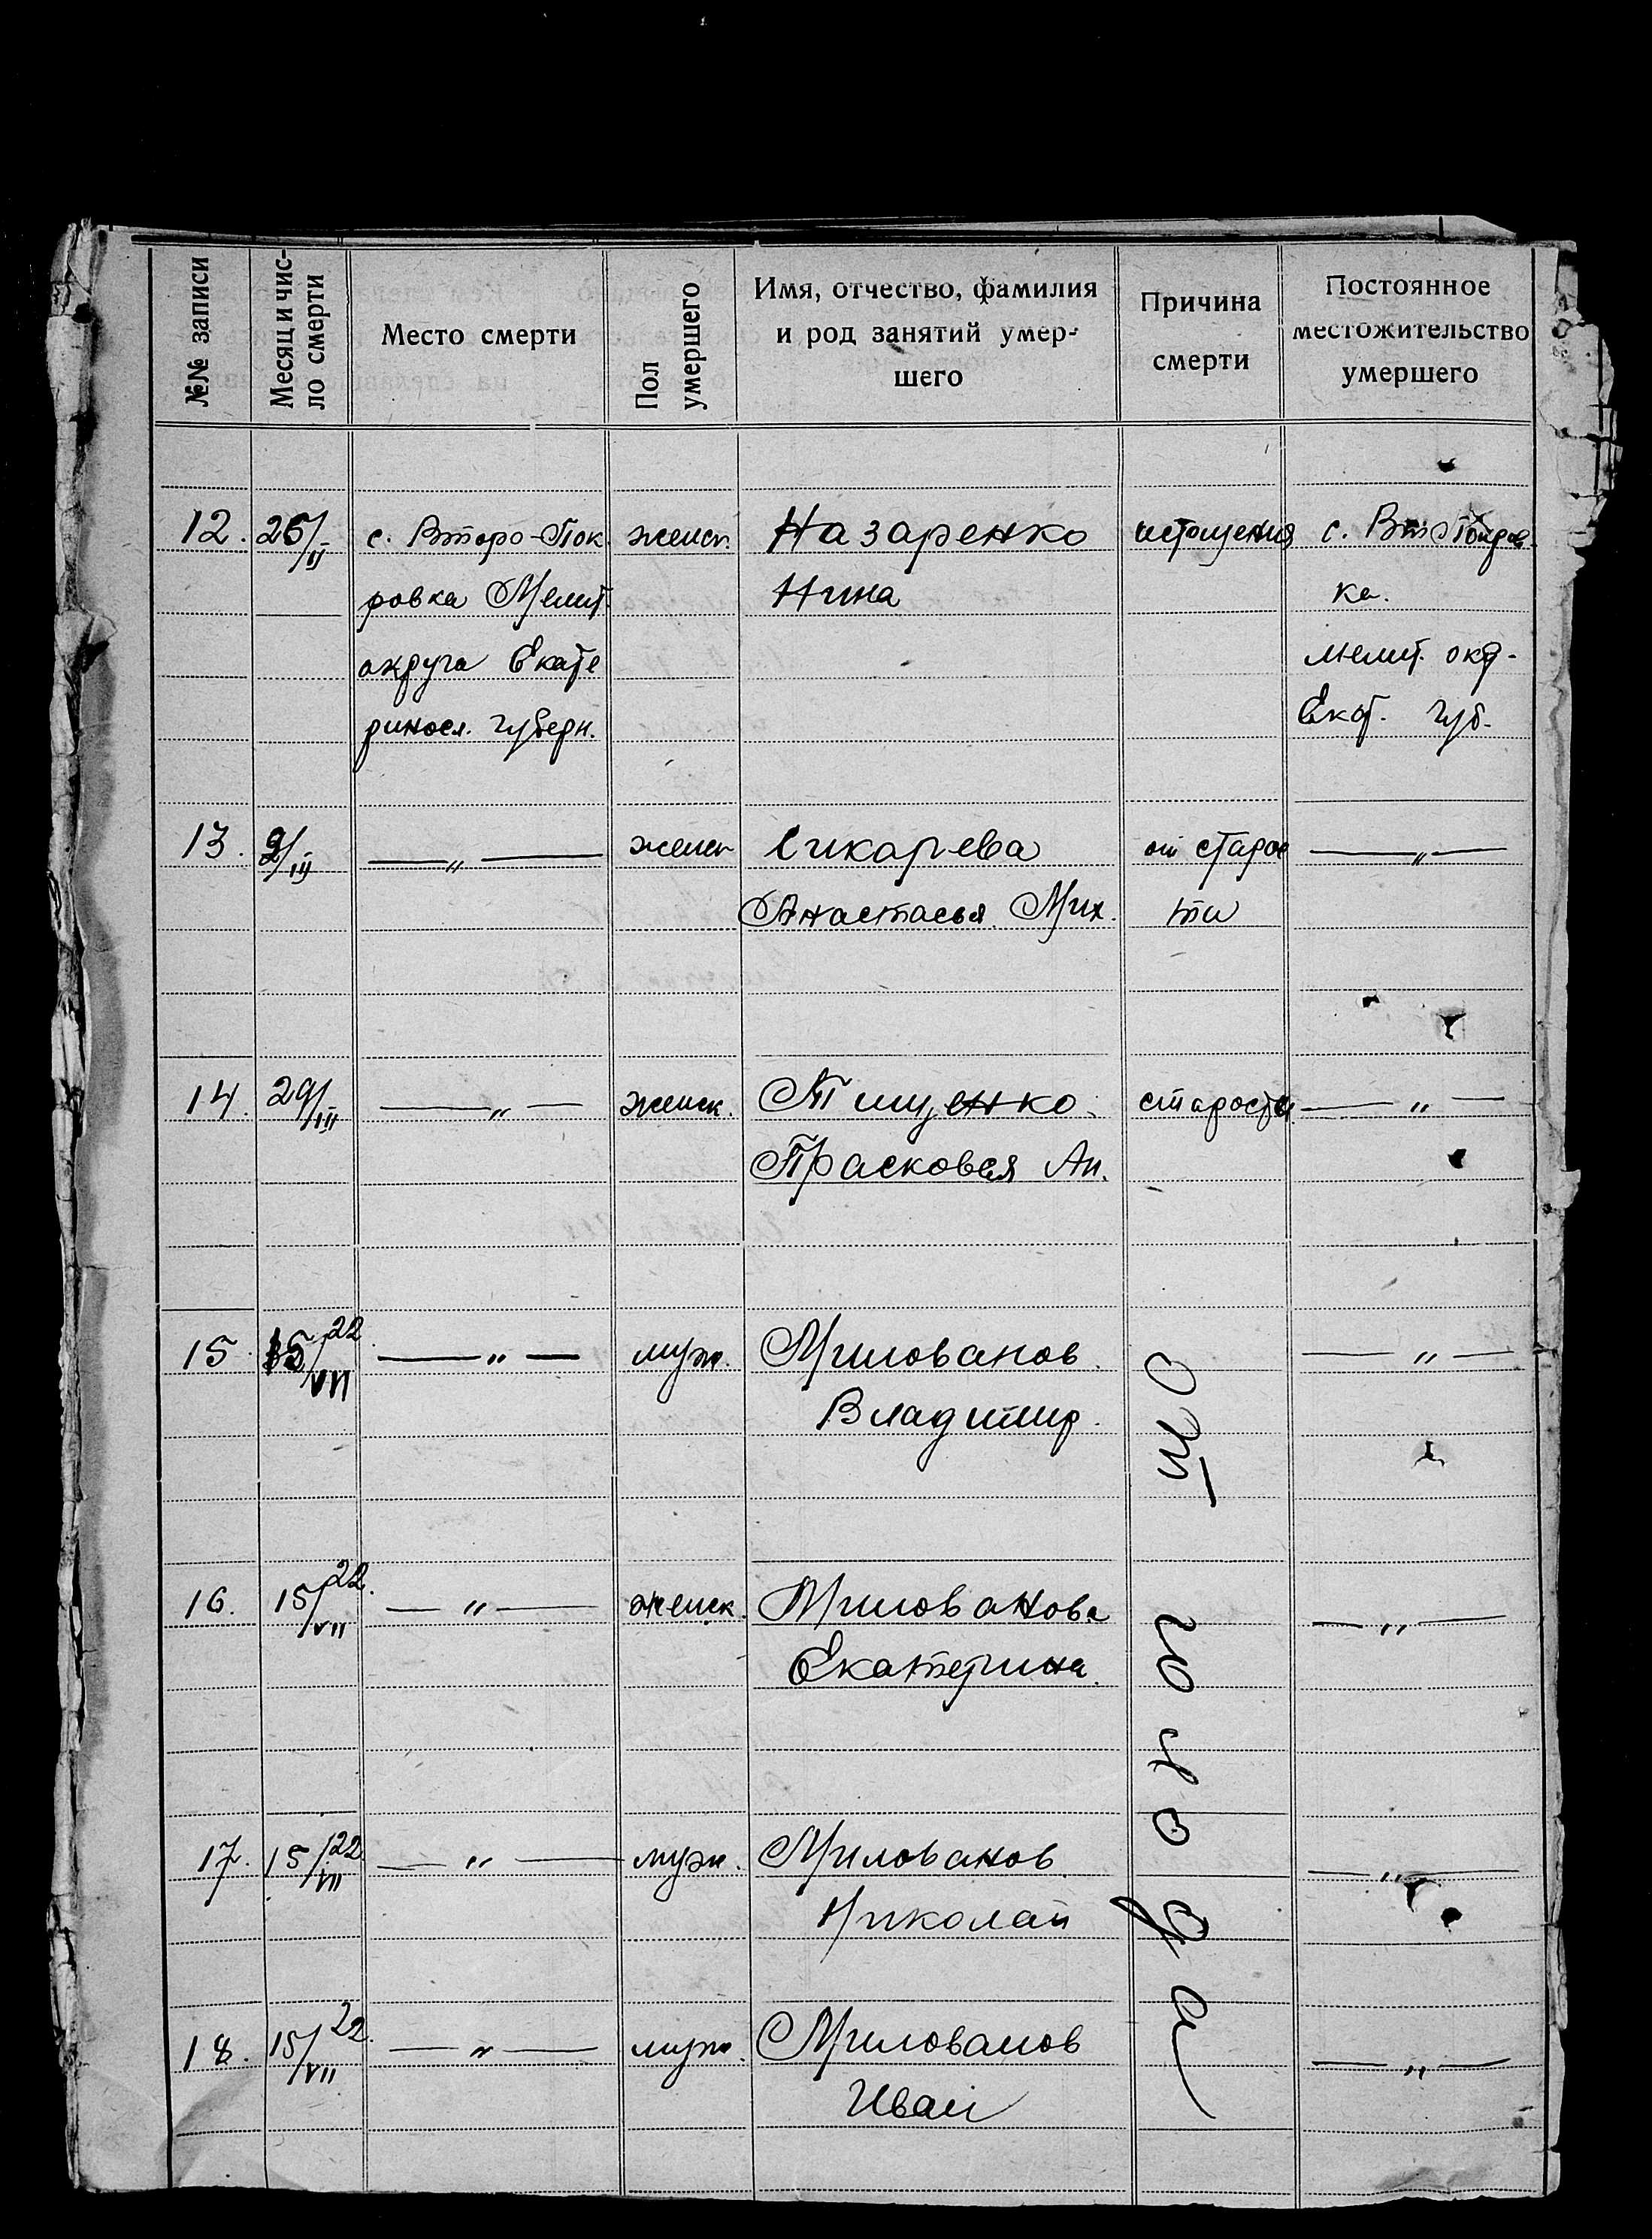 №№ записи
Месяц и чис-
ло смерти
Место смерти
Пол
умершего
Имя, отчество, фамилия
и род занятий умер-
шего
Причина
смерти
Постоянное
местожительство
умершего
12. 26/II с. Второ-Пок женск. Назаренко истощения с. Вт Покров
ровка Мелит. Нина ка.
округа Екате мелит. окр.
риносл. губерн. Екат. губ.
13. 2/III —„— женск Сикарева от старос —„—
Анастасья Мих. ти
14. 29/III —„— женск. Тищенко старости —„—
Прасковья Ан.
15 15/VII 22 —„— муж. Милованов —„—
Владимир.
16. 15/VII 22. —„— женск. Милованова —„—
Екатерина.
17. 15/VII 22 —„— муж. Милованов —„—
Николай
18. 15/VII 22. —„— муж. Милованов —„—
Иван
От голода